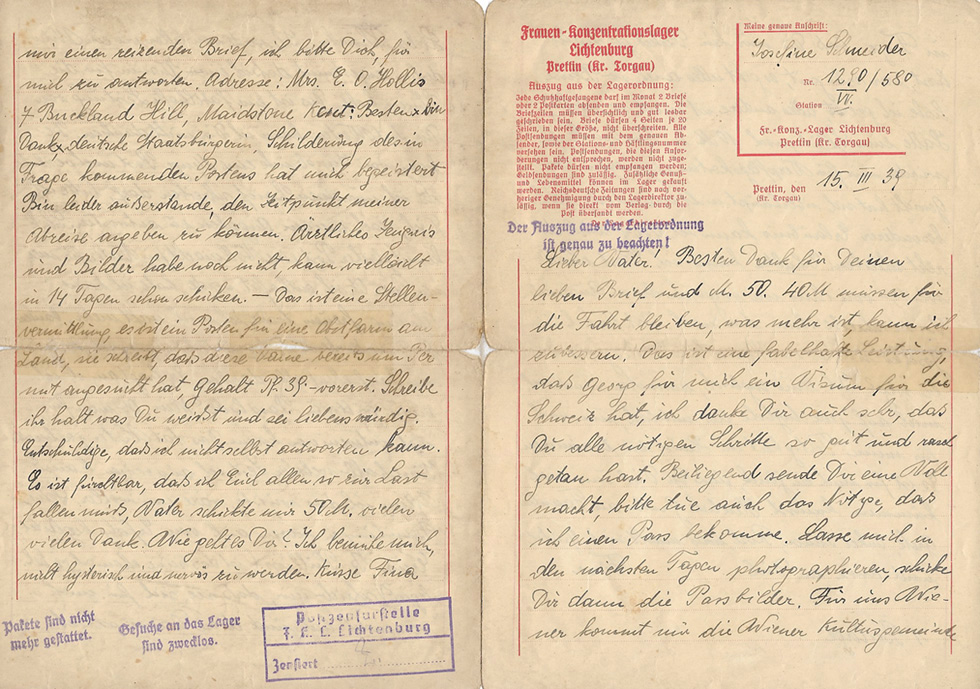 mir einen reizenden Brief, ich bitte Dich, für
mich zu antworten. Adresse: Mrs. E. O. Hollis
7 Buckland Hill, Maidstone Kent: Besten
Dank, deutsche Staatsbürgerin, Schilderung des in
Frage kommenden Postens hat mich begeistert
Bin leider außerstande, den Zeitpunkt meiner
Abreise angeben zu können. Ärztliches Zeugnis
und Bilder habe noch nicht, kann vielleicht
in 14 Tagen schon schicken. — Das ist eine Stellen-
vermittlung, es ist ein Posten für eine Obstfarm am
Land, sie schreibt, daß diese Dame bereits um Per
mit angesucht hat, Gehalt Pf. 39.- vorerst. Schreibe
ihr halt was Du weißt und sei liebenswürdig.
Entschuldige, daß ich nicht selbst antworten kann.
Es ist furchtbar, daß ich Euch allen so zur Last
fallen muß, Vater schickte mir 50 M. vielen
vielen Dank. Wie geht es Dir? Ich bemühe mich,
nicht hysterisch und nervös zu werden. Küsse Fina
Pakete sind nicht
mehr gestattet.
Gesuche an das Lager
sind zwecklos.
Postzensurstelle
F. K. L. Lichtenburg
Zensiert
Frauen-Konzentrationslager
Lichtenburg
Prettin (Kr. Torgau)
Auszug aus der Lagerordnung:
Jede Schutzhaftgefangene darf im Monat 2 Briefe
oder 2 Postkarten absenden und empfangen. Die
Briefzeilen müssen übersichtlich und gut lesbar
geschrieben sein. Briefe dürfen 4 Seiten je 20
Zeilen, in dieser Größe, nicht überschreiten. Alle
Postsendungen müssen mit dem genauen Ab-
sender, sowie der Stations- und Häftlingsnummer
versehen sein. Postsendungen, die diesen Anfor-
derungen nicht entsprechen, werden nicht zuge-
stellt. Pakete dürfen nicht empfangen werden;
Geldsendungen sind zulässig. Zusätzliche Genuß-
und Lebensmittel können im Lager gekauft
werden. Reichsdeutsche Zeitungen sind nach vor-
heriger Genehmigung durch den Lagerdirektor zu-
lässig, wenn sie direkt vom Verlag durch die
Post übersandt werden.
Der Auszug aus der Lagerordnung
ist genau zu beachten!
Meine genaue Anschrift:
Josefine Schneider
Nr. 1290/580
Station IV.
Fr.-Konz.-Lager Lichtenburg
Prettin (Kr. Torgau)
Prettin, den 15. III 39
(Kr. Torgau)
Lieber Vater! Besten Dank für Deinen
lieben Brief und M. 50. 40 M müssen für
die Fahrt bleiben, was mehr ist, kann ich
zubessern. Das ist eine fabelhafte Leistung,
daß Georg für mich ein Visum für die
Schweiz hat, ich danke Dir auch sehr, daß
Du alle nötigen Schritte so gut und rasch
getan hast. Beiliegend sende Dir eine Voll
macht, bitte tue auch das Nötige, daß
ich einen Pass bekomme. Lasse mich in
den nächsten Tagen photographieren, schicke
Dir dann die Passbilder. Für uns Wie-
ner kommt nur die Wiener Kultusgemeinde